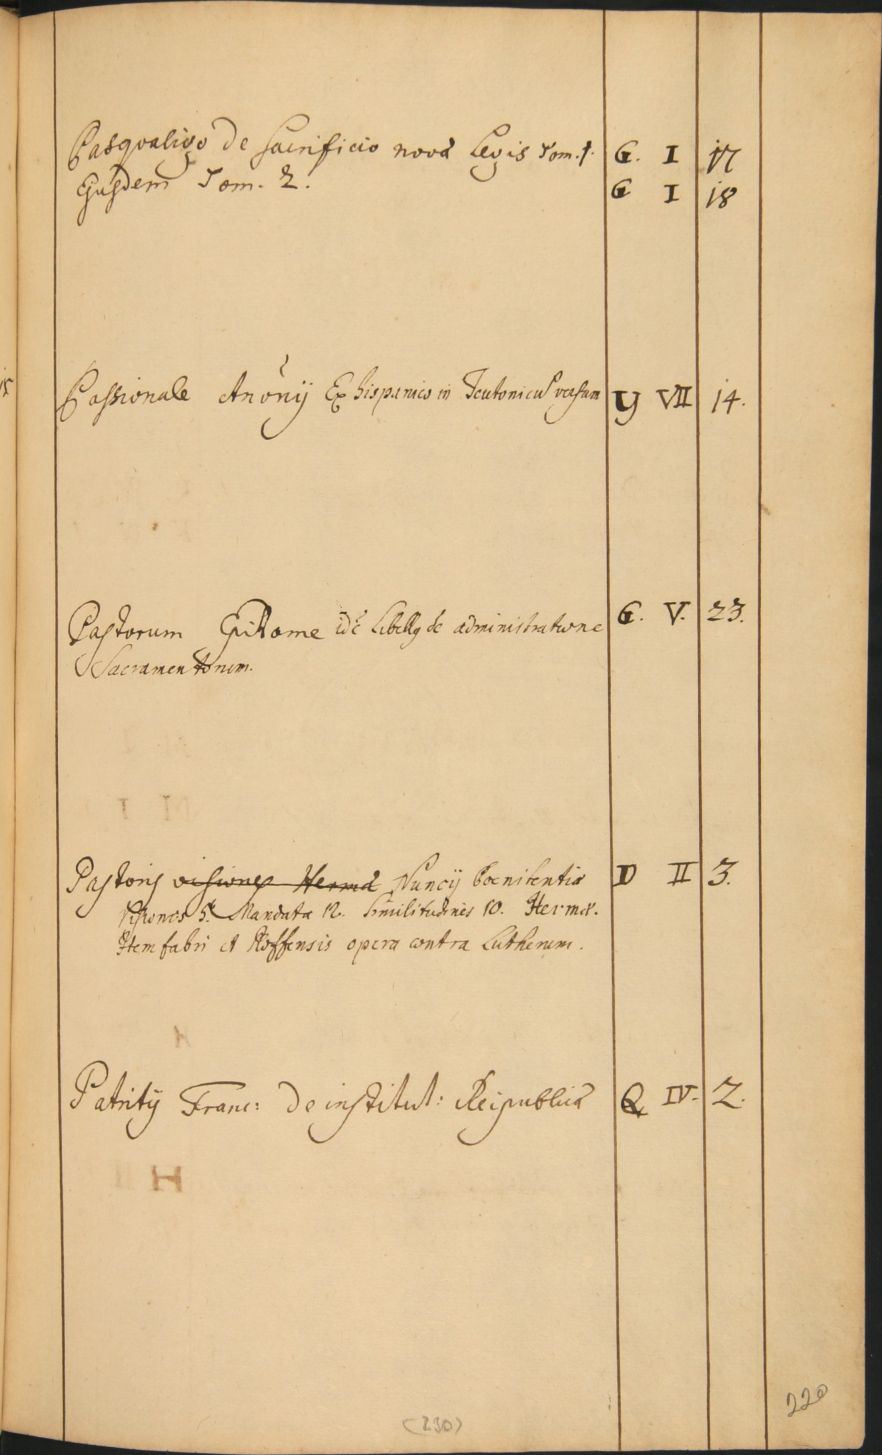 Pasqualigo De Sacrificio novæ Legis Tom. 1. G. I 17
Ejusdem Tom. 2. G I 18
Passionale Anōnÿ Ex hispanico in Teutonicū versum Y VII 14.
Pastorum Epitome idē Libellq de administratione G. V. 23.
Sacramentorum.
Pastoris visiones Hermæ Nuncij Poenitentiæ D II 3.
Visiones 5. Mandata 12. Similitudines 10. Hermæ.
Item fabri et Roffensis opera contra Lutherum.
Patritÿ Franc: De institut: Reipublicæ Q IV. 2.
(230)
220